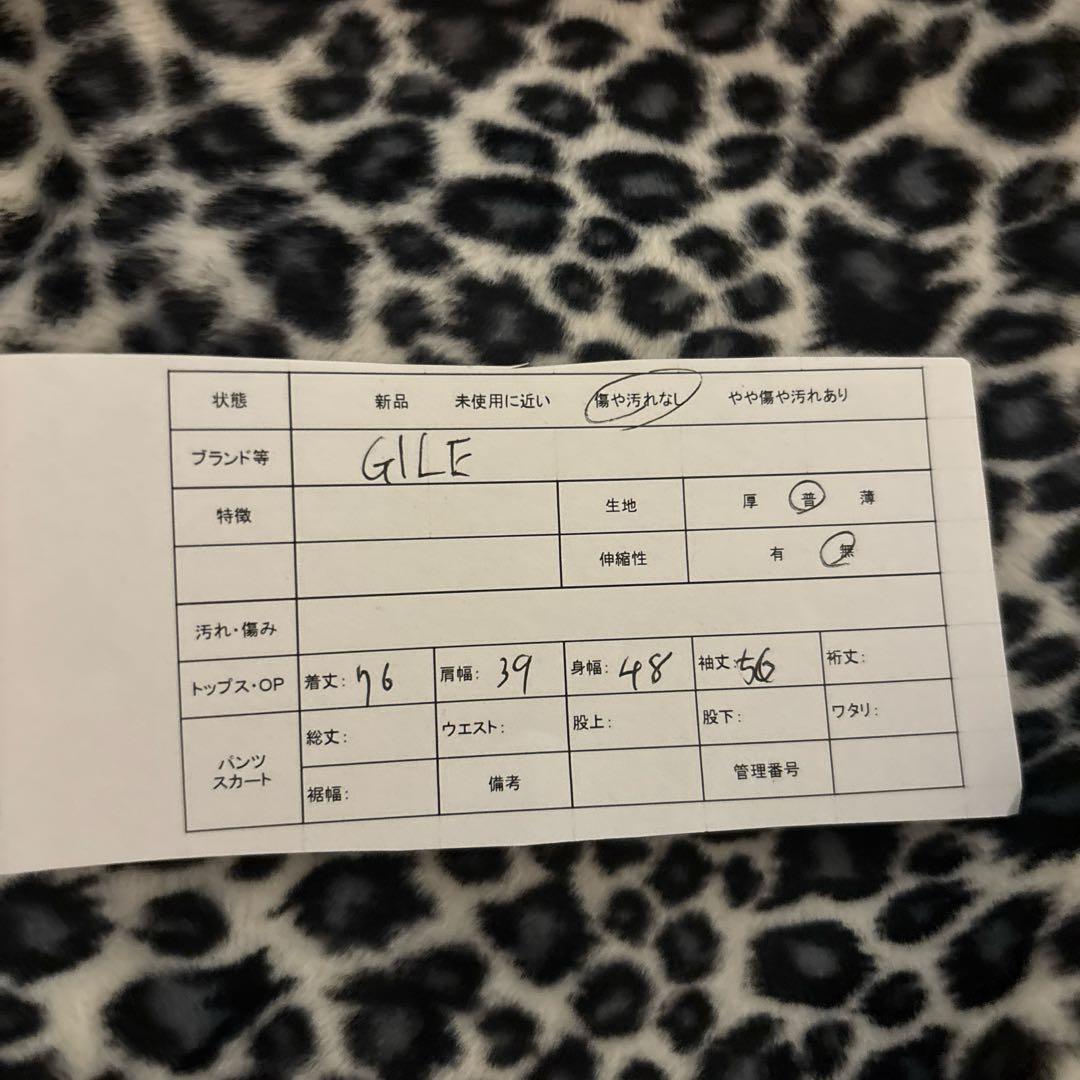 状態 新品 未使用に近い 傷や汚れなし やや傷や汚れあり
ブランド等 GILE
特徴 生地 厚 普 薄
伸縮性 有 無
汚れ・傷み
トップス・OP 着丈: 76 肩幅: 39 身幅: 48 袖丈: 56 裄丈:
パンツ スカート 総丈: ウエスト: 股上: 股下: ワタリ:
裾幅: 備考 管理番号